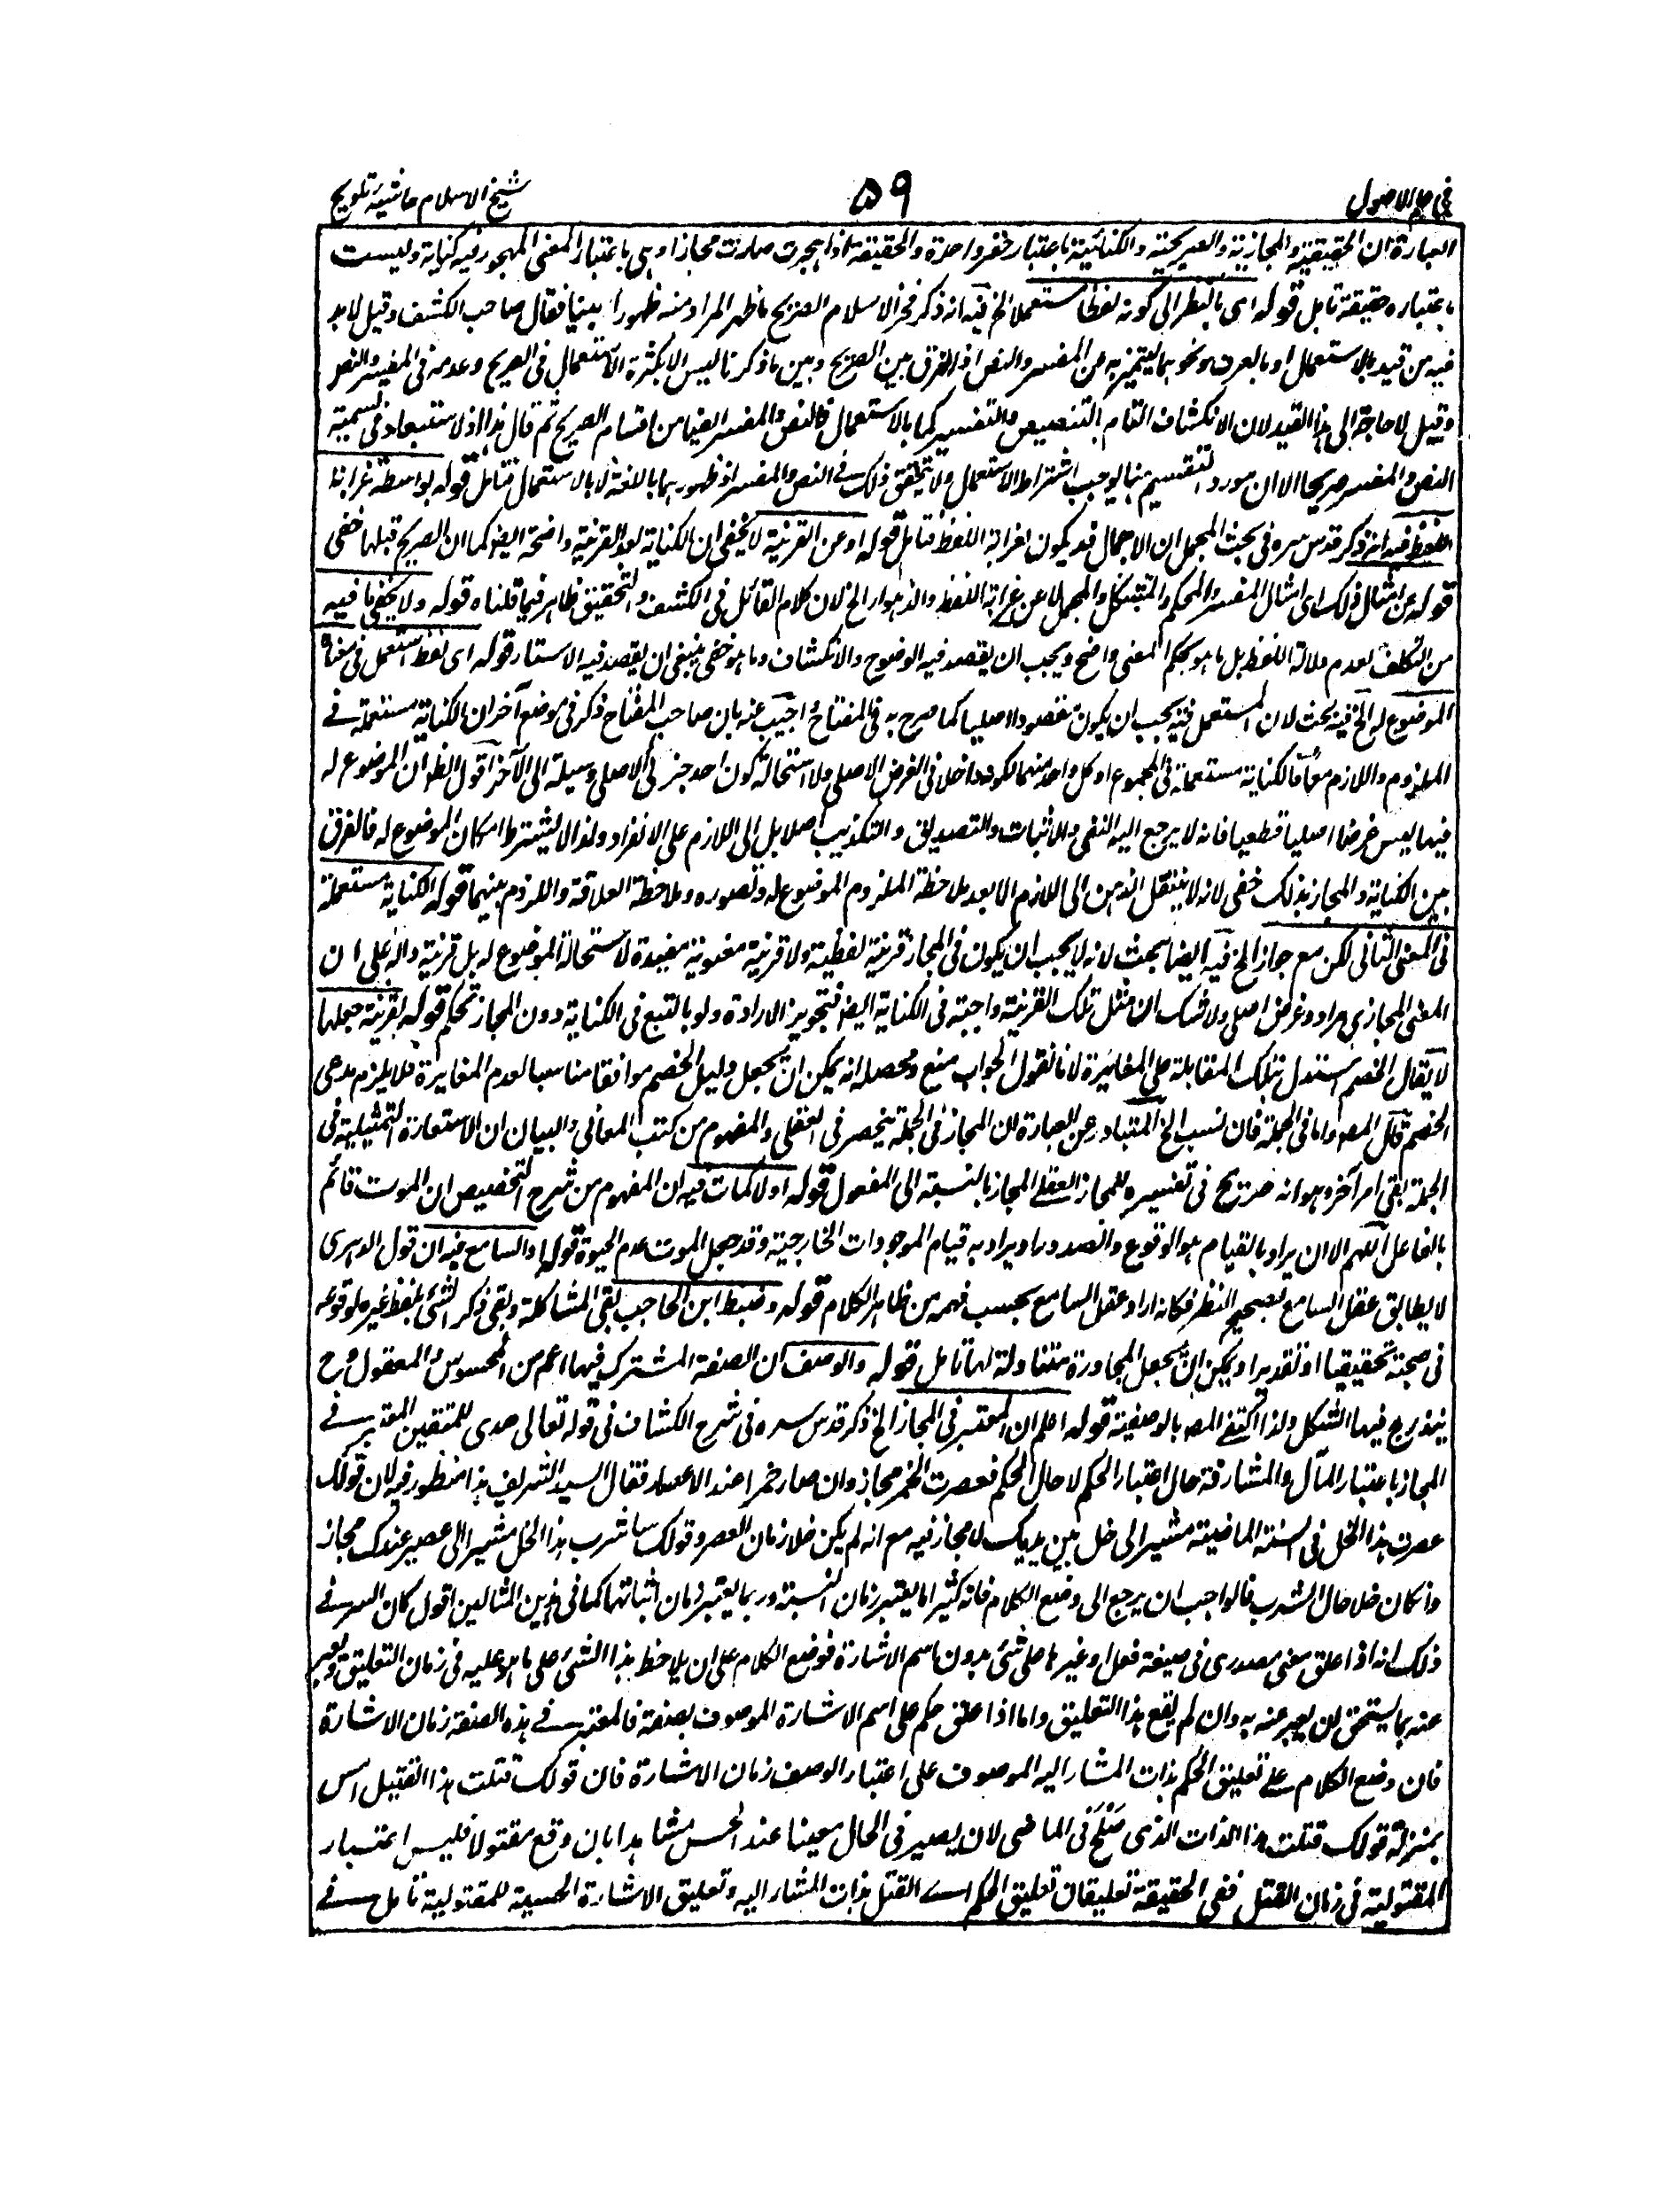 في علم الاصول
۵۹
شيخ الاسلام حاشية تلويح
العبارة ان الحقيقية والمجازية والصريحية والكنائية باعتبار واحدة والحقيقة اذا هجرت صارت مجازا وهي باعتبار المعنى المهجور فيه كناية وليست
باعتباره حقيقة تامل قوله اى بالنظر الى كونه لفظا مستعملا الخ فيه انه ذكر فخر الاسلام الصريح ما ظهر المراد منه ظهورا بينا فقال صاحب الكشف وقيل لابد
فيه من قيد بالاستعمال او بالعرف ونحوهما ليتميز به عن المفسر والنص اذ الفرق بين الصريح وبين ما ذكرنا ليس الا بكثرة الاستعمال في الصريح وعدمه في المفسر والنص
وقيل لا حاجة الى هذا القيد لان الانكشاف التام التنصيص والتفسير كما بالاستعمال فالنص والمفسر ايضا من اقسام الصريح ثم قال هذا اذ لا استبعاد في تسمية
النص والمفسر صريحا الا ان مورد التقسيم هنا يوجب اشتراط الاستعمال ولا يتحقق ذلك في النص والمفسر اذ ظهورهما باللغة لا بالاستعمال فتامل قوله بواسطة غرابة
اللفظ فيه انه ذكر قدس سره في بحث المجمل ان الاجمال قد يكون لغرابة اللفظ فتامل قوله او عن القرينة لا يخفى ان الكناية بعد القرينة واضحة ايضا كما ان الصريح قبلها خفي
قوله عن امثال ذلك اى امثال المفسر والمحكم والمشكل والمجمل لا عن غرابة اللفظ والذهول الخ لان كلام القائل في الكشف والتحقيق ظاهر فيما قلناه قوله ولا يخفى ما فيه
من التكلف لعدم دلالة اللفظ بل ما هو بحكم المعنى واضح ويجب ان يقصد فيه الوضوح والانكشاف وما هو خفي ينبغي ان يقصد فيه الاستتار قوله اى لفظ استعمل في معناه
الموضوع له الخ فيه بحث لان المستعمل فيه يجب ان يكون مقصودا اصليا كما صرح به في المفتاح واجيب عنه بان صاحب المفتاح ذكر في موضع آخر ان الكناية مستعملة في
الملزوم واللازم معا فالكناية مستعملة في المجموع او كل واحد منهما لكونه داخلا في الغرض الاصلي ولا استحالة كون احد جزئى الاصلي وسيلة الى الآخر اقول الظ ان الموضوع له
فيها ليس غرضا اصليا قطعيا فانه لا يرجع اليه النفي والاثبات والتصديق والتكذيب اصلا بل الى اللازم على الانفراد ولذا لا يشترط امكان الموضوع له فالفرق
بين الكناية والمجاز بذلك خفي لانه لا ينتقل الذهن الى اللازم الا بعد ملاحظة الملزوم الموضوع له وتصوره وملاحظة العلاقة واللزوم بينهما قوله الكناية مستعملة
في المعنى الثاني لكن مع جواز الخ فيه ايضا بحث لانه لا يجب ان يكون في المجاز قرينة لفظية ولا قرينة معنوية مفيدة لاستحالة الموضوع له بل قرينة دالة على ان
المعنى المجازي مراد وغرض اصلي ولا شك ان مثل تلك القرينة واجبة في الكناية ايضا فتجويز الارادة ولو بالتبع في الكناية دون المجاز تحكم قوله بقرينة جعلها
لا يقال الخصم استدل بتلك المقابلة على المغايرة لانا نقول الجواب منع ومحصله انه يمكن ان تجعل دليل الخصم موافقا مناسبا لعدم المغايرة فلا يلزم مدعى
الخصم قال المصـ واما في الجملة فان نسب الخ المتبادر عن العبارة ان المجاز في الجملة ينحصر في العقلي والمفهوم من كتب المعاني والبيان ان الاستعارة التمثيلية في
الجملة بقي امر آخر وهو انه صرح في تفسيره للمجاز العقلي المجاز بالنسبة الى المفعول قوله اولا كمات فيه ان المفهوم من شرح التخصيص ان الموت قائم
بالفاعل اللهم الا ان يراد بالقيام هو الوقوع والصدور او يراد به قيام الموجودات الخارجية وقد جعل الموت عدم الحيوة قوله والسامع فيه ان قول الدهرى
لا يطابق عقل السامع لصحيح النظر فكانه اراد عقل السامع بحسب فهمه من ظاهر الكلام قوله وضبط ابن الحاجب بقي المشاكلة وبقي ذكر الشئ بلفظ غيره لوقوعه
في صحبته تحقيقا او تقديرا ويمكن ان تجعل المجاورة متناولة لها تامل قوله والوصف ان الصفة المشترك فيها اعم من المحسوس والمعقول وح
يندرج فيها الشكل ولذا اكتفى المصـ بالوصفية قوله اعلم ان المعتبر في المجاز الخ ذكر قدس سره في شرح الكشاف في قوله تعالى هدى للمتقين المعتبر في
المجاز باعتبار المآل والمشارفة حال اعتبار الحكم لا حال الحكم فعصرت الخمر مجاز وان صار خمرا عند الاعصار فقال السيد الشريف هذا منظور فيه لان قولك
عصرت هذا الخل في السنة الماضية مشيرا الى خل بين يديك لا مجاز فيه مع انه لم يكن خلا زمان العصر وقولك ساشرب هذا الخل مشيرا الى عصير عندك مجاز
وان كان خلا حال الشرب فالواجب ان يرجع الى وضع الكلام فانه كثيرا ما يعتبر زمان النسبة وربما يعتبر زمان اثباتها كما في هذين المثالين اقول كان السر في
ذلك انه اذا علق معنى مصدرى في صيغة فعل وغيرها على شئ بدون اسم الاشارة فوضع الكلام على ان يلاحظ هذا الشئ على ما هو عليه في زمان التعليق ويعبر
عنه بما يستحق ان يعبر عنه به وان لم يقع هذا التعليق واما اذا علق حكم على اسم الاشارة الموصوف بصفة فالمعتبر في هذه الصفة زمان الاشارة
فان وضع الكلام على تعليق الحكم بذات المشار اليه الموصوف على اعتبار الوصف زمان الاشارة فان قولك قتلت هذا القتيل امس
بمنزلة قولك قتلت هذا الذات الذى صلح في الماضى لان يصير في الحال معينا عند الحس مشاهدا بان وقع مقتولا فليس اعتبار
المقتولية في زمان القتل ففي الحقيقة تعليقان تعليق الحكم اى القتل بذات المشار اليه وتعليق الاشارة الحسية للمقتولية تامل في